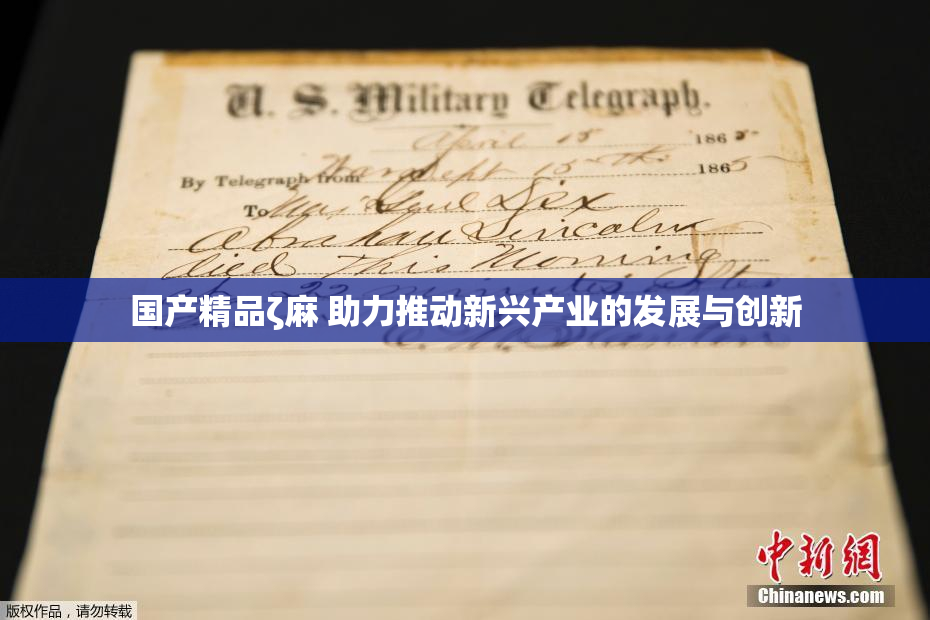 U. S. Military Telegraph.
April 15 1865.
By Telegraph from War Dept 15th 1865
To Maj Genl Dix
Abraham Lincoln
died this Morning
at 22 minutes after
国产精品ζ麻 助力推动新兴产业的发展与创新
中新网
Chinanews.com
版权作品，请勿转载